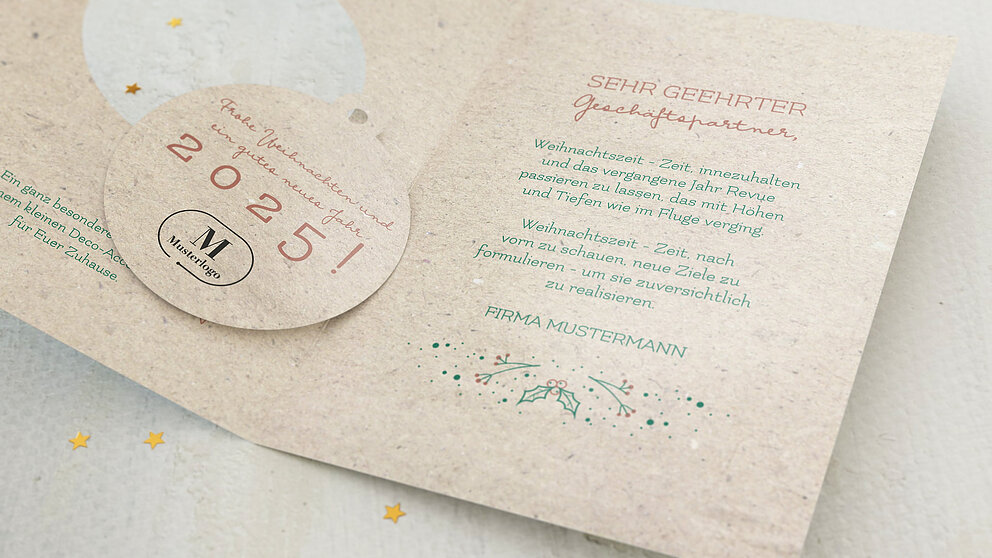 Frohe Weihnachten und
ein gutes neues Jahr
2025!
M
Musterlogo
Ein ganz besondere
kleinen Deco-Acc
für Euer Zuhause.
SEHR GEEHRTER
Geschäftspartner,
Weihnachtszeit - Zeit, innezuhalten
und das vergangene Jahr Revue
passieren zu lassen, das mit Höhen
und Tiefen wie im Fluge verging.
Weihnachtszeit - Zeit, nach
vorn zu schauen, neue Ziele zu
formulieren - um sie zuversichtlich
zu realisieren.
FIRMA MUSTERMANN